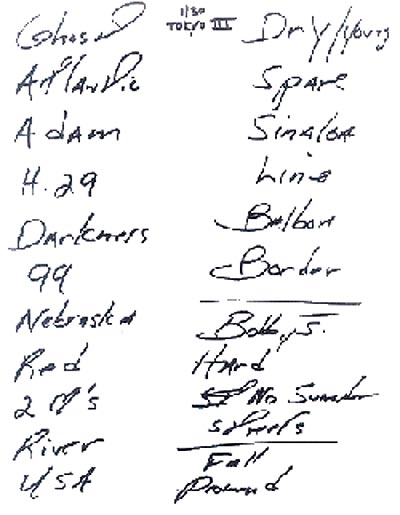 1/30
TOKYO III
Ghost
Atlantic
Adam
H. 29
Darkness
99
Nebraska
Red
2
River
USA
Dry/Young
Spare
Sinaloa
Line
Balboa
Border
Bobby J.
Hard
No Surrender
Streets
Fall
Promised